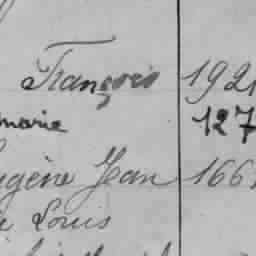 François 192
marie 127
Eugène Jean 166
Louis